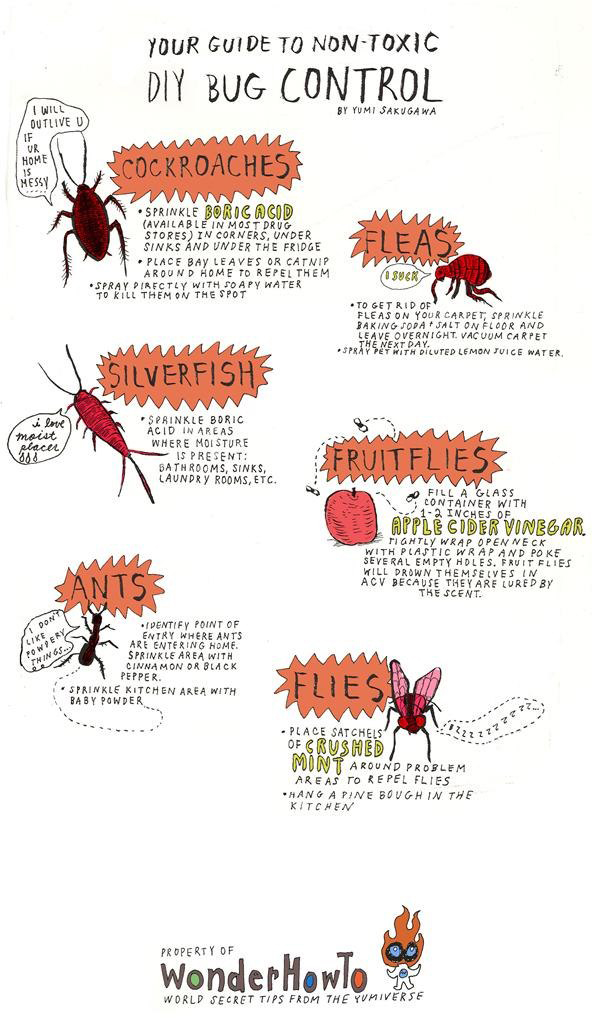 YOUR GUIDE TO NON-TOXIC
DIY BUG CONTROL
BY YUMI SAKUGAWA
I WILL
OUTLIVE U
IF
UR
HOME
IS
MESSY
COCKROACHES
• SPRINKLE BORIC ACID
(AVAILABLE IN MOST DRUG
STORES) IN CORNERS, UNDER
SINKS AND UNDER THE FRIDGE
• PLACE BAY LEAVES OR CATNIP
AROUND HOME TO REPEL THEM
• SPRAY DIRECTLY WITH SOAPY WATER
TO KILL THEM ON THE SPOT
FLEAS
I SUCK
• TO GET RID OF
FLEAS ON YOUR CARPET, SPRINKLE
BAKING SODA + SALT ON FLOOR AND
LEAVE OVERNIGHT. VACUUM CARPET
THE NEXT DAY.
• SPRAY PET WITH DILUTED LEMON JUICE WATER.
SILVERFISH
i love
moist
places
• SPRINKLE BORIC
ACID IN AREAS
WHERE MOISTURE
IS PRESENT:
BATHROOMS, SINKS,
LAUNDRY ROOMS, ETC.
FRUITFLIES
FILL A GLASS
CONTAINER WITH
1-2 INCHES OF
APPLE CIDER VINEGAR.
TIGHTLY WRAP OPEN NECK
WITH PLASTIC WRAP AND POKE
SEVERAL EMPTY HOLES. FRUIT FLIES
WILL DROWN THEMSELVES IN
ACV BECAUSE THEY ARE LURED BY
THE SCENT.
ANTS
I DON'T
LIKE
POWDERY
THINGS...
• IDENTIFY POINT OF
ENTRY WHERE ANTS
ARE ENTERING HOME.
SPRINKLE AREA WITH
CINNAMON OR BLACK
PEPPER.
• SPRINKLE KITCHEN AREA WITH
BABY POWDER
FLIES
BZZZZZZZZZZ...
• PLACE SATCHELS
OF CRUSHED
MINT AROUND PROBLEM
AREAS TO REPEL FLIES
• HANG A PINE BOUGH IN THE
KITCHEN
PROPERTY OF
WonderHowTo
WORLD SECRET TIPS FROM THE YUMIVERSE